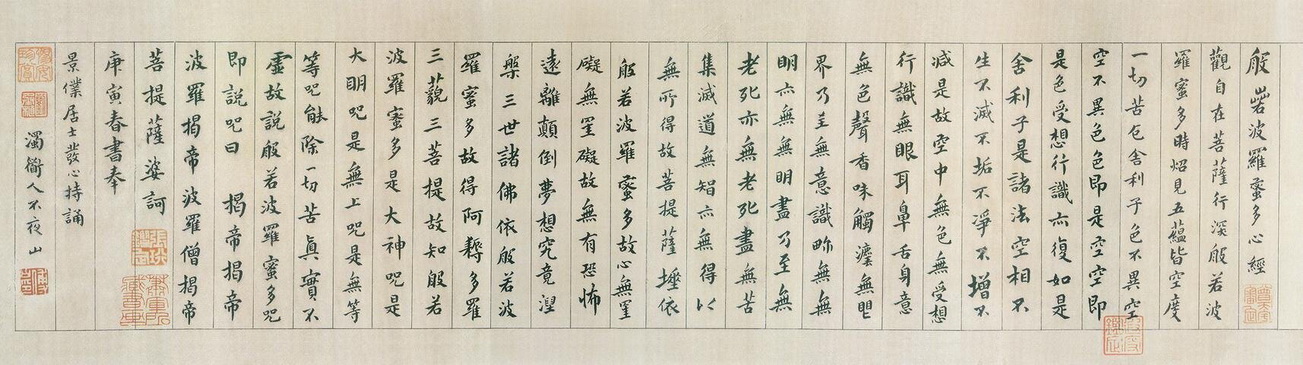 般若波羅蜜多心經
觀自在菩薩行深般若波
羅蜜多時炤見五蘊皆空度
一切苦厄舍利子色不異空
空不異色色即是空空即
是色受想行識亦復如是
舍利子是諸法空相不
生不滅不垢不淨不增不
減是故空中無色無受想
行識無眼耳鼻舌身意
無色聲香味觸法無眼
界乃至無意識界無無
明亦無無明盡乃至無
老死亦無老死盡無苦
集滅道無智亦無得以
無所得故菩提薩埵依
般若波羅蜜多故心無罣
礙無罣礙故無有恐怖
遠離顛倒夢想究竟涅
槃三世諸佛依般若波
羅蜜多故得阿耨多羅
三藐三菩提故知般若
波羅蜜多是大神咒是
大明咒是無上咒是無等
等咒能除一切苦真實不
虛故說般若波羅蜜多咒
即說咒曰 揭帝揭帝
波羅揭帝波羅僧揭帝
菩提薩婆訶
庚寅春書奉
景僕居士發心持誦
濁衜人不夜山